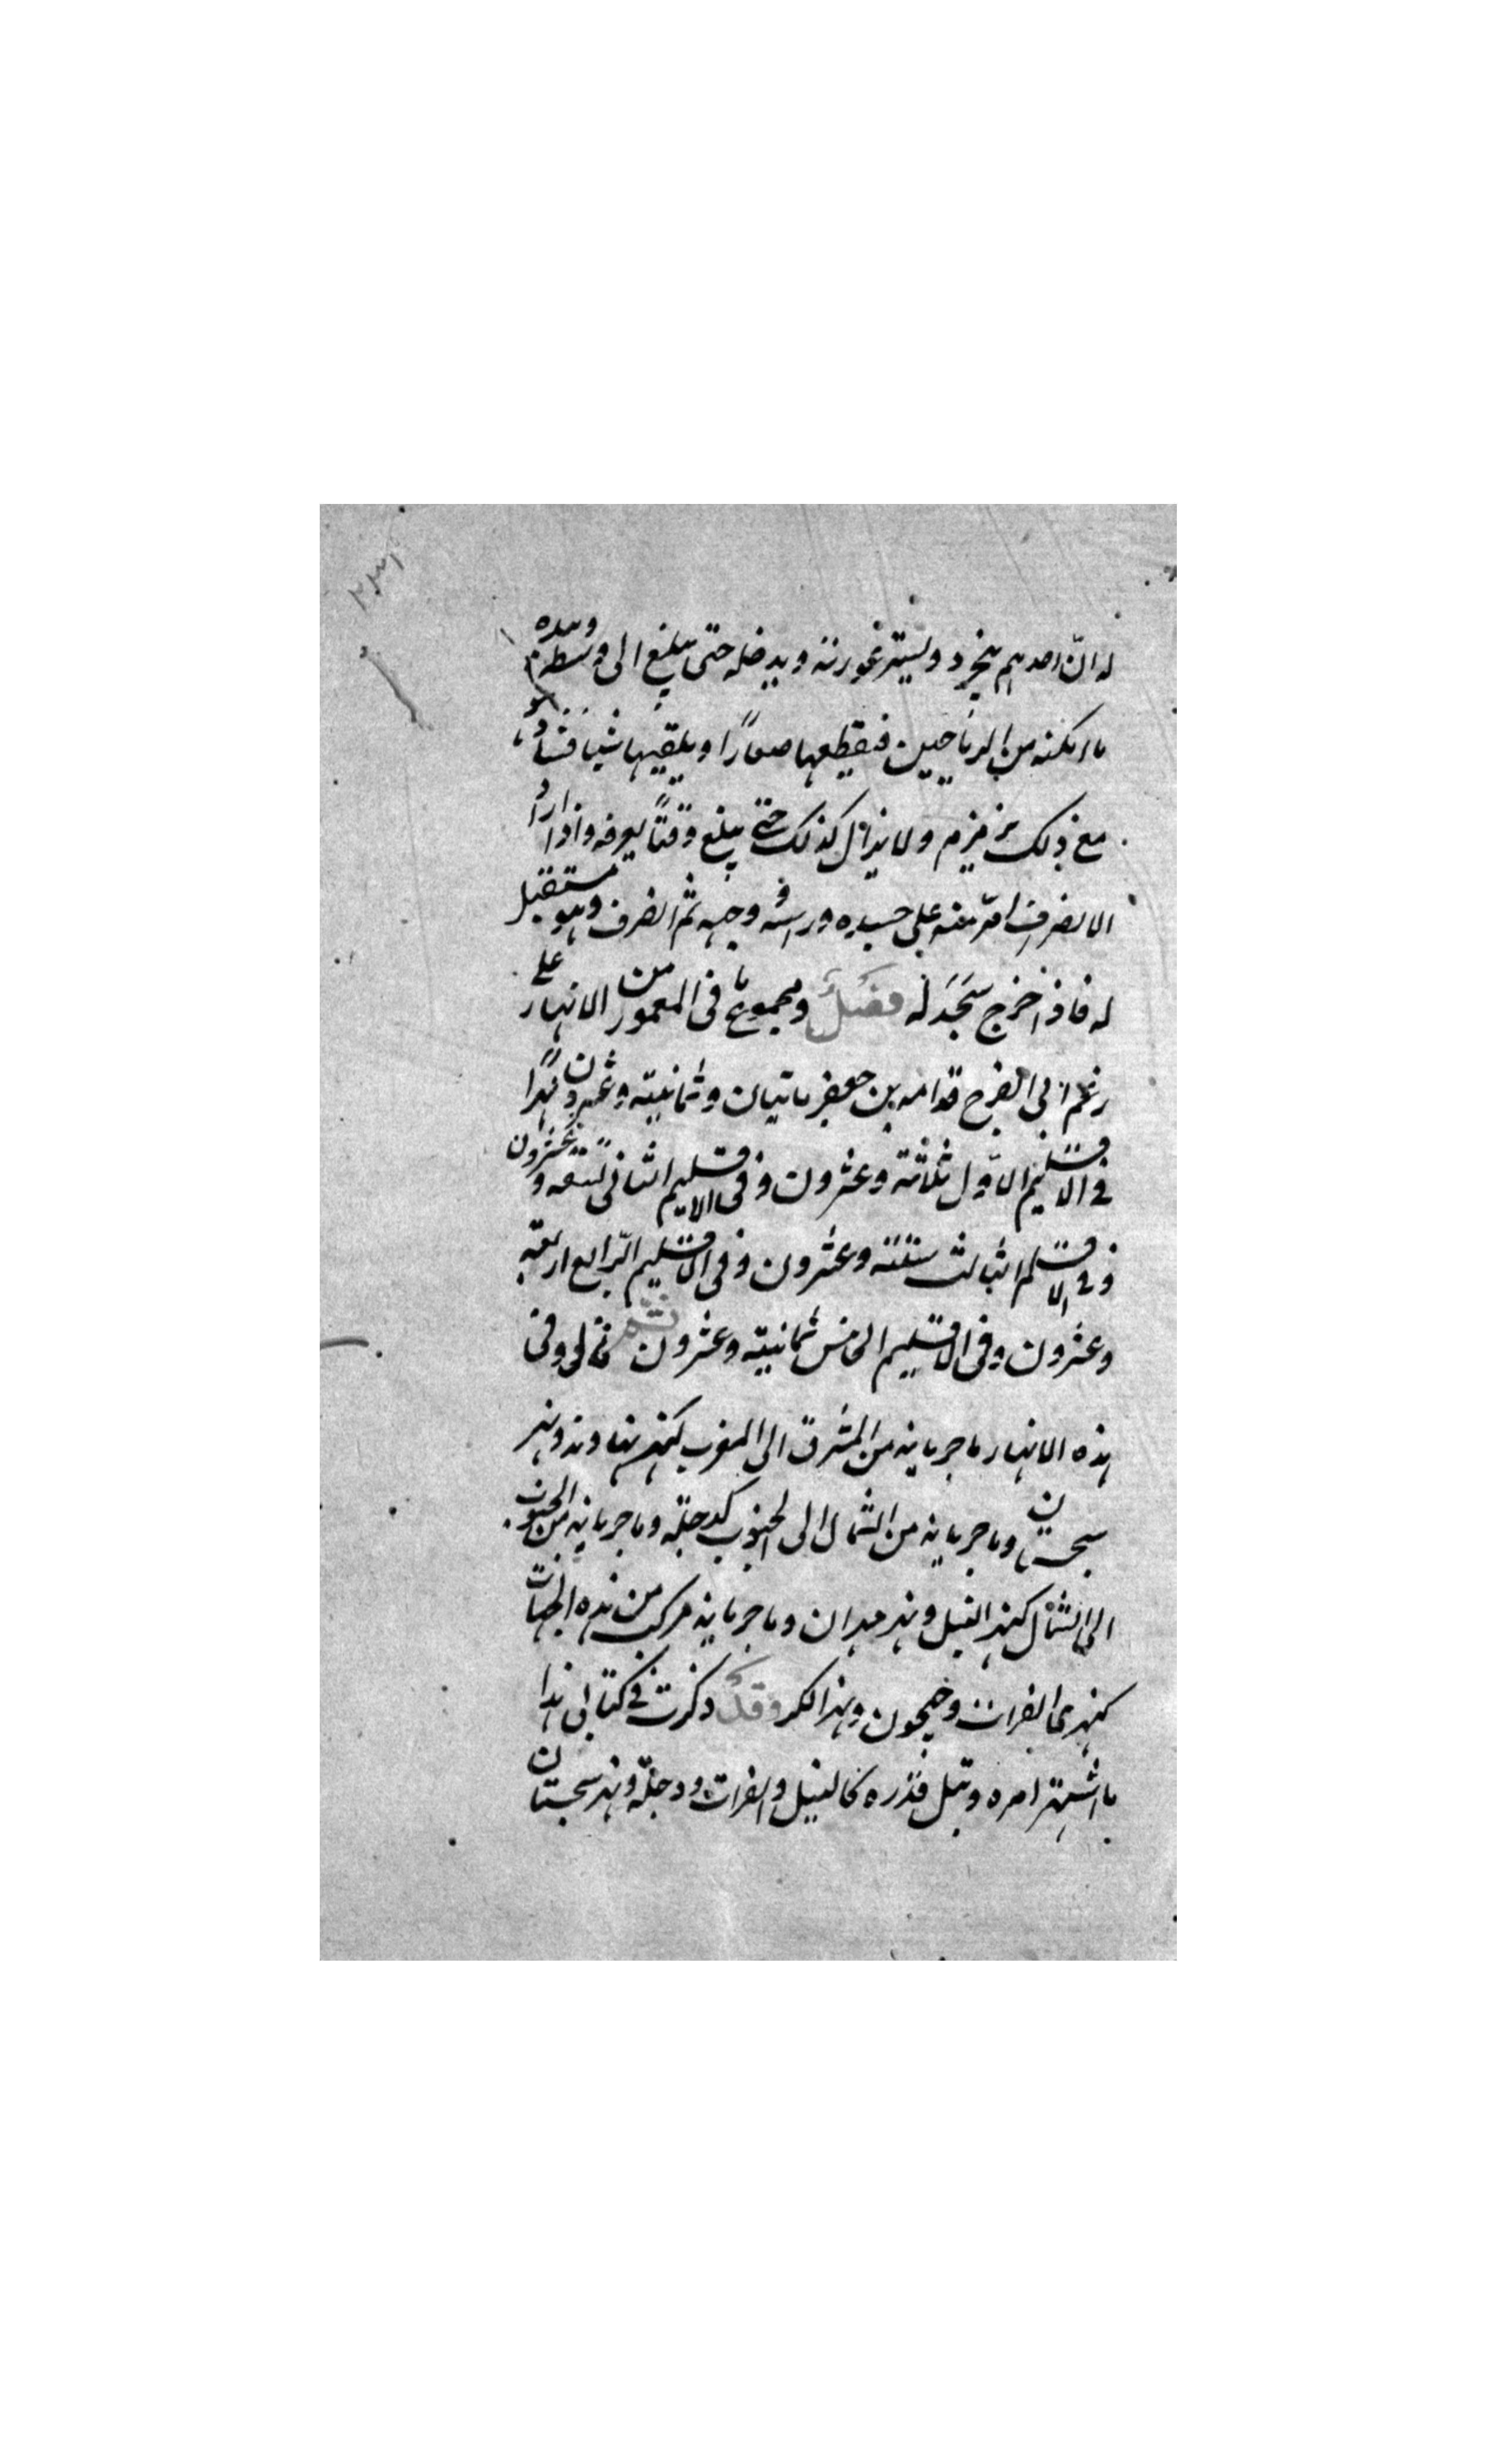 ٢٣١
له انّ احدهم يتجرد ويستر عورته ويدخله حتى يبلغ الى وسطه وبيده
ما امكنه من الرياحين فيقطعها صغارًا ويلقيها شيئا فشيئا و
مع ذلك يزمزم ولا يزال كذلك حتى يبلغ وقتًا يعرفه واذا اراد
الانصراف امرّ منه على جسده وراسه ووجهه ثم انصرف وهو مستقبل
له فاذا خرج سَجَدَ لَه فصل ومجموع ما فى المعمور من الانهار على
زعم ابى الفرج قدامه بن جعفر مايتان وثمانية وعشرون نهرًا
فى الاقليم الاوّل ثلاثة وعشرون وفى الاقليم الثانى تسعة وعشرون
وفى الاقليم الثالث ستة وعشرون وفى الاقليم الرّابع اربعة
وعشرون وفى الاقليم الخامس ثمانية وعشرون ثم قال وفى
هذه الانهار ما جريانه من المشرق الى المغرب كنهر نهاوند ونهر
سجستان وما جريانه من الشمال الى الجنوب كدجلة وما جريانه من الجنوب
الى الشمال كنهر النيل ونهر مهران وما جريانه مركب من هذه الجهات
كنهرى الفرات وجيحون ونهر الكر وقد ذكرت فى كتابى هذا
ما اشتهر امره وتبل قدره كالنيل والفرات ودجلة ونهر سجستان